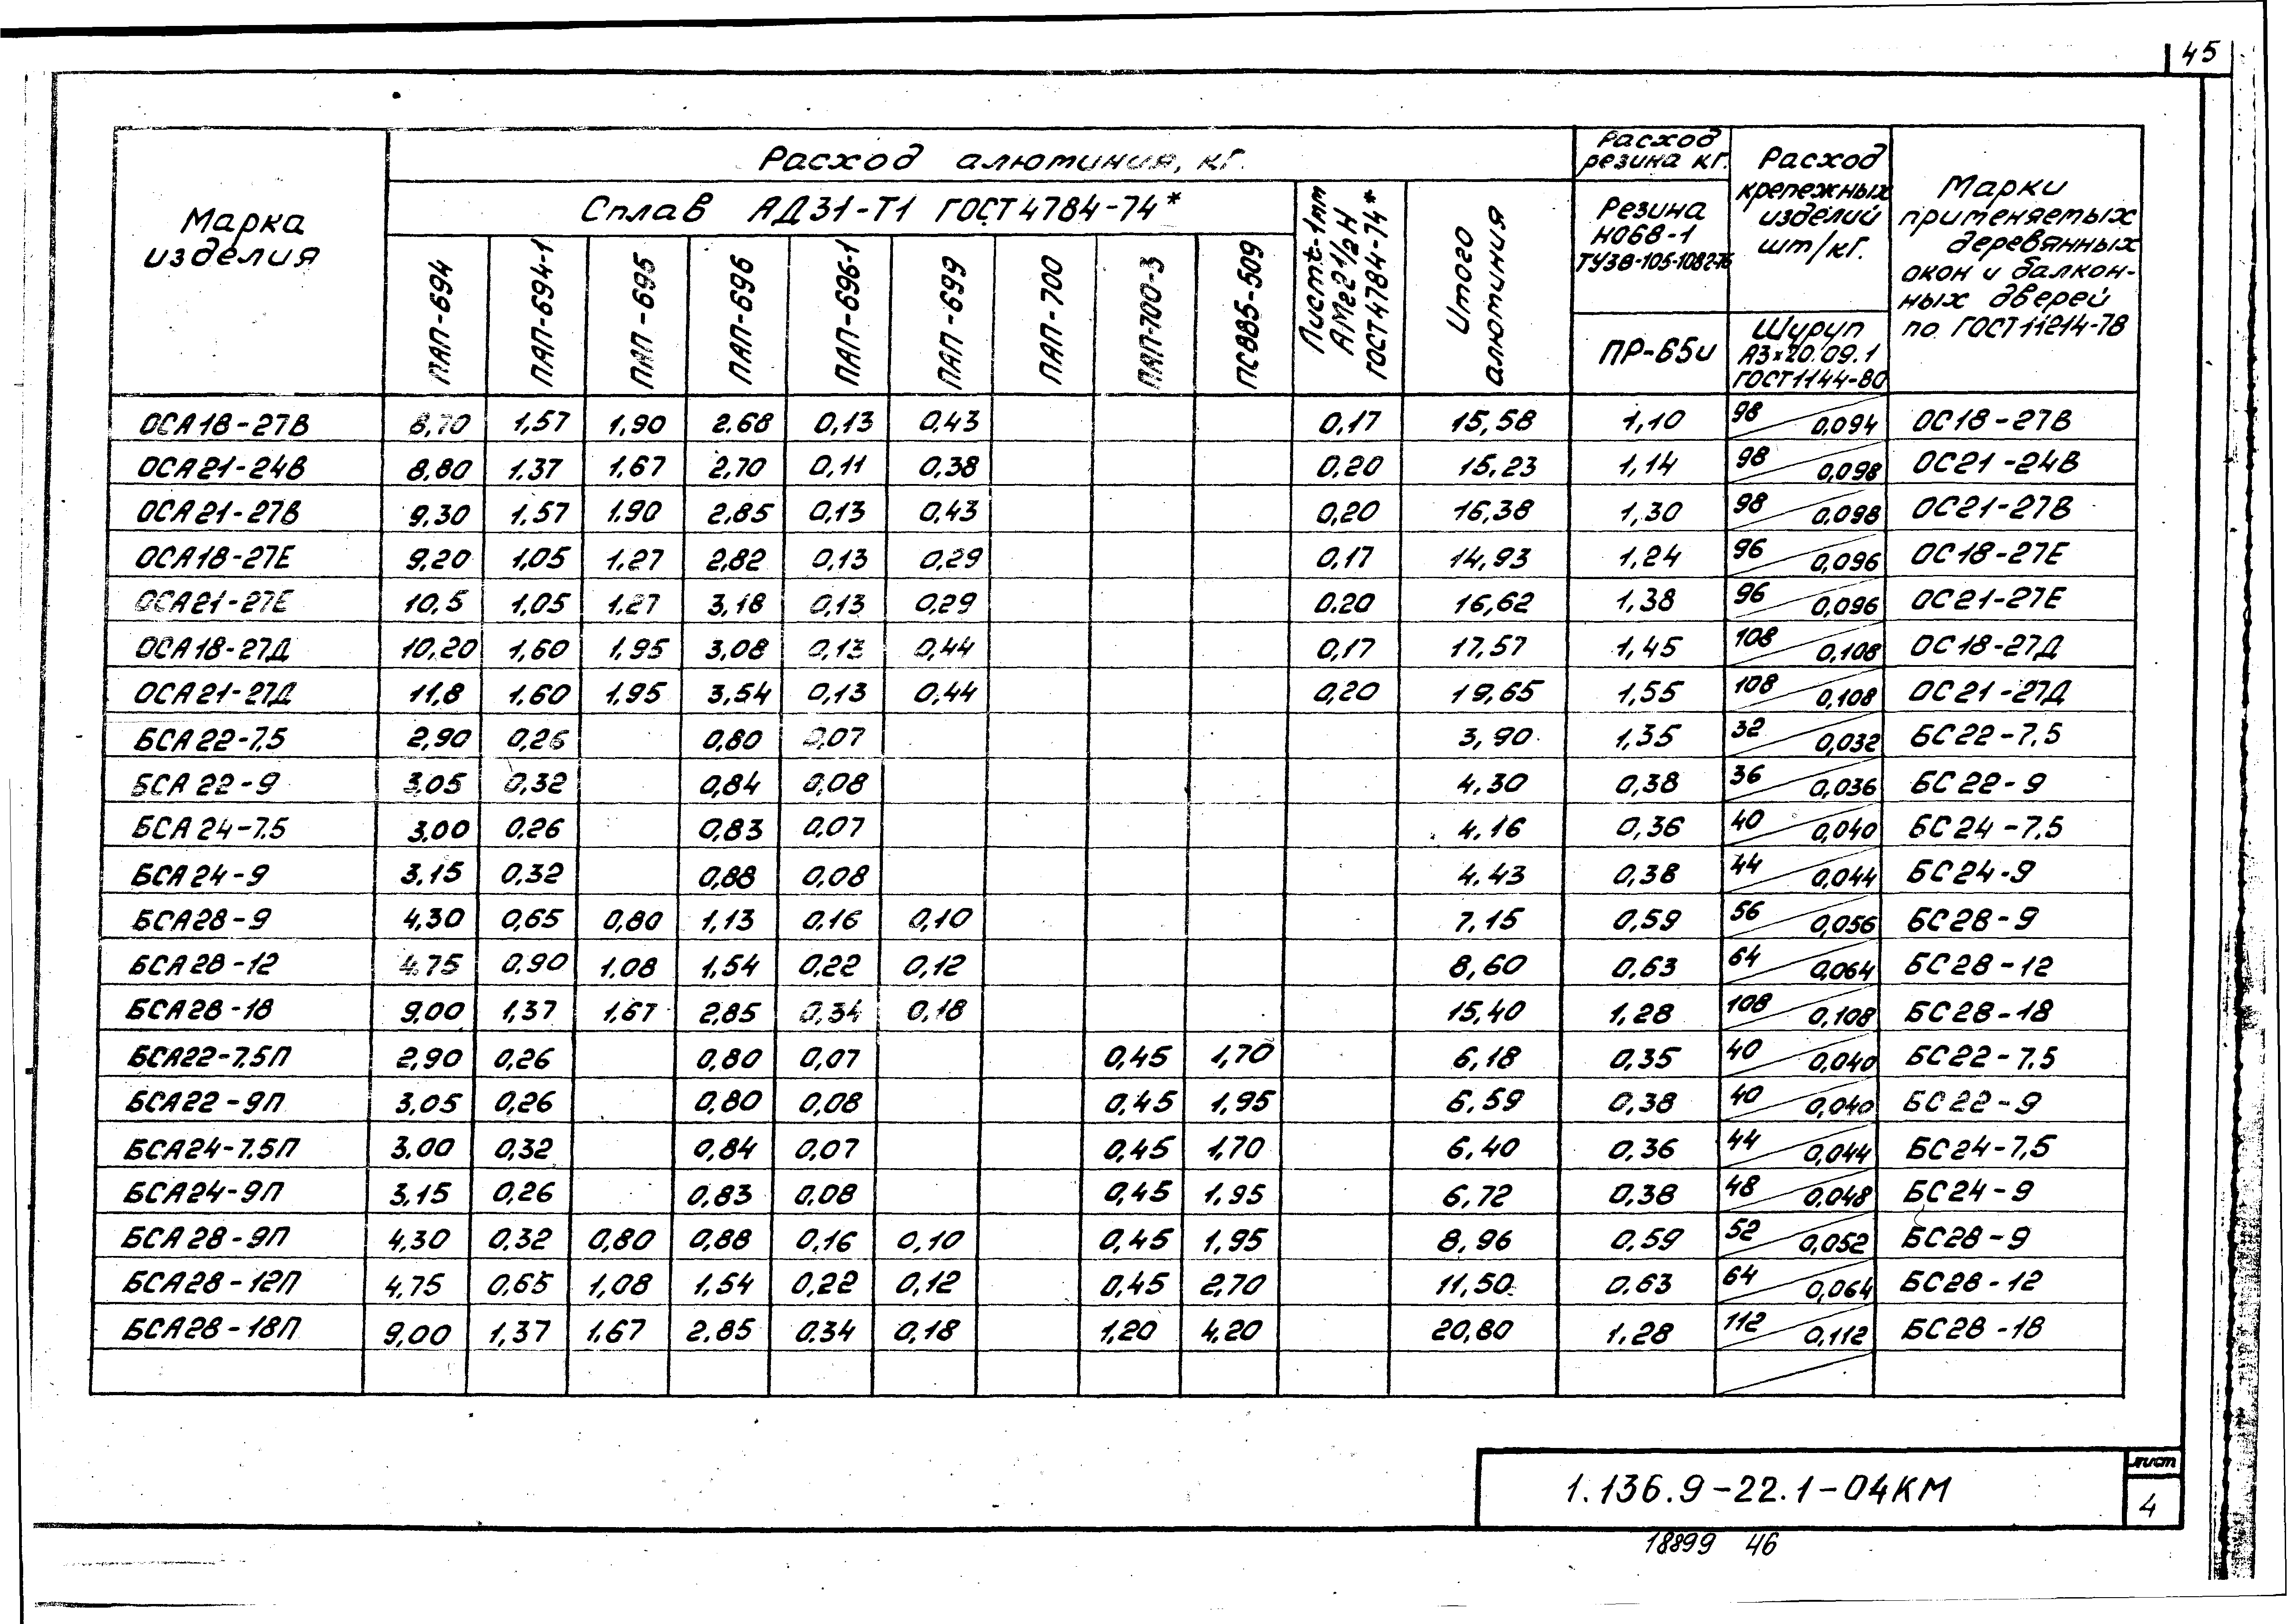 45
Марка изделия
Расход алюминия, кг.
Расход резина кг.
Расход крепежных изделий шт/кг.
Марки применяемых деревянных окон и балконных дверей по ГОСТ 11214-78
Сплав АД31-Т1 ГОСТ 4784-74*
Лист t-1mm АМг2 1/2 Н ГОСТ 4784-74*
Итого алюминия
Резина НО68-1 ТУ38-105-1082-76
ПАП-694 ПАП-694-1 ПАП-695 ПАП-696 ПАП-696-1 ПАП-699 ПАП-700 ПАП-700-3 ПС885-509
ПР-65и
Шуруп А3×20.09.1 ГОСТ 1144-80
ОСА18-27В 8,70 1,57 1,90 2.68 0,13 0,43 0,17 15,58 1,10 98/0,094 ОС18-27В
ОСА21-24В 8,80 1,37 1,67 2,70 0,11 0,38 0.20 15,23 1,14 98/0,098 ОС21-24В
ОСА21-27В 9,30 1,57 1.90 2,85 0,13 0,43 0,20 16,38 1,30 98/0,098 ОС21-27В
ОСА18-27Е 9,20 1,05 1,27 2,82 0,13 0,29 0,17 14,93 1,24 96/0,096 ОС18-27Е
ОСА21-27Е 10,5 1,05 1,27 3,18 0,13 0,29 0.20 16,62 1,38 96/0,096 ОС21-27Е
ОСА18-27Д 10,20 1,60 1,95 3,08 0,13 0,44 0,17 17,57 1,45 108/0,108 ОС18-27Д
ОСА21-27Д 11,8 1,60 1,95 3,54 0,13 0,44 0,20 19,65 1,55 108/0,108 ОС21-27Д
БСА22-7,5 2,90 0,26 0,80 0,07 3,90 1,35 32/0,032 БС22-7,5
БСА22-9 3,05 0,32 0,84 0,08 4.30 0,38 36/0,036 БС22-9
БСА24-7.5 3,00 0,26 0,83 0,07 4.16 0,36 40/0,040 БС24-7,5
БСА24-9 3,15 0,32 0,88 0,08 4.43 0,38 44/0,044 БС24-9
БСА28-9 4,30 0,65 0,80 1,13 0,16 0,10 7,15 0,59 56/0,056 БС28-9
БСА28-12 4,75 0,90 1,08 1,54 0,22 0,12 8,60 0,63 64/0,064 БС28-12
БСА28-18 9,00 1,37 1,67 2,85 0,34 0,18 15,40 1,28 108/0,108 БС28-18
БСА22-7,5П 2,90 0,26 0,80 0,07 0,45 1,70 6,18 0,35 40/0,040 БС22-7,5
БСА22-9П 3,05 0,26 0,80 0,08 0,45 1,95 6,59 0,38 40/0,040 БС22-9
БСА24-7.5П 3,00 0,32 0,84 0,07 0,45 1,70 6,40 0,36 44/0,044 БС24-7,5
БСА24-9П 3,15 0,26 0,83 0,08 0,45 1,95 6,72 0,38 48/0,048 БС24-9
БСА28-9П 4,30 0,32 0,80 0,88 0,16 0,10 0,45 1,95 8,96 0,59 52/0,052 БС28-9
БСА28-12П 4,75 0,65 1,08 1,54 0,22 0,12 0,45 2,70 11,50 0.63 64/0,064 БС28-12
БСА28-18П 9,00 1,37 1,67 2.85 0.34 0,18 1,20 4,20 20,80 1.28 112/0,112 БС28-18
1.136.9-22.1-04КМ
лист
4
18899 46